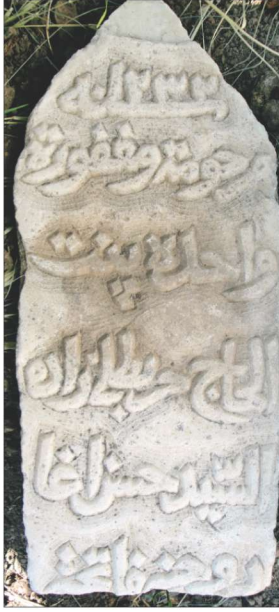 سنه ١٢٣٣
مرحومة ومغفورة
واحدة بنت
الحاج زاده
السيد حسن اغا
روحنه فاتحة